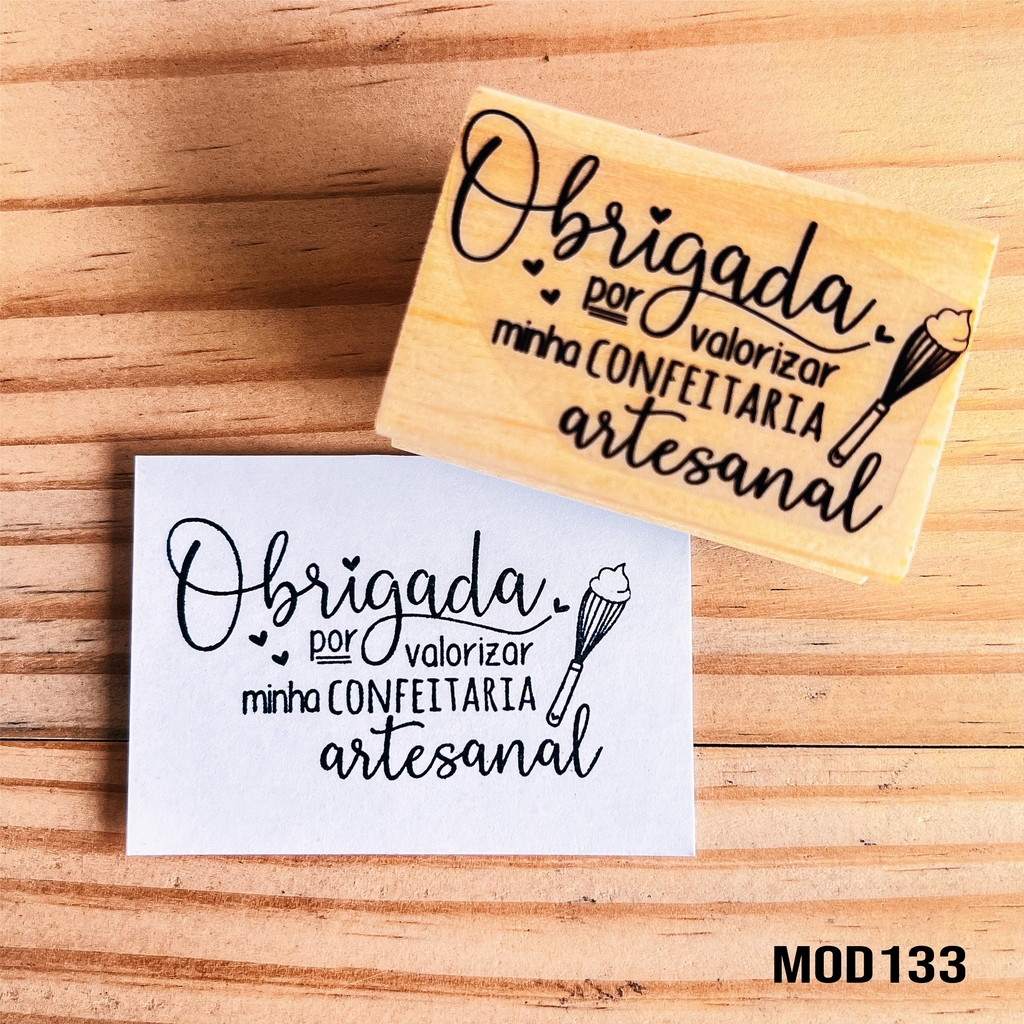 Obrigada
por valorizar
minha CONFEITARIA
artesanal
Obrigada
por valorizar
minha CONFEITARIA
artesanal
MOD133